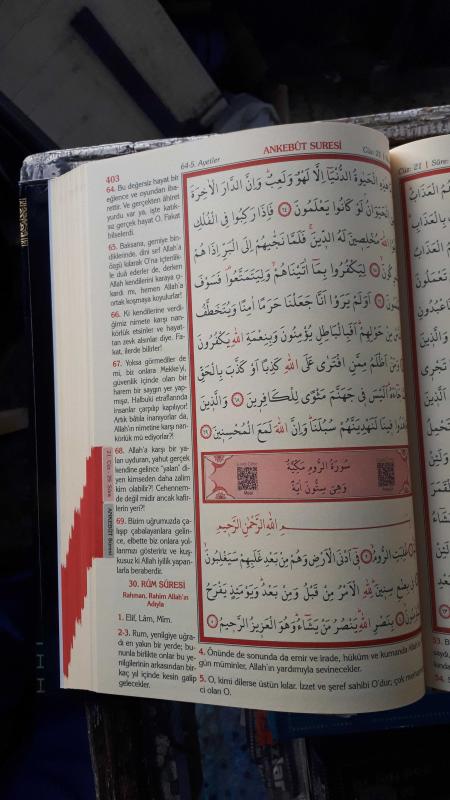 403
64-5. Ayetler
ANKEBÛT SURESİ
Cüz: 21
64. Bu değersiz hayat bir
eğlence ve oyundan iba-
rettir. Ve gerçekten âhiret
yurdu var ya, işte katık-
sız gerçek hayat O. Fakat
bilselerdi.
65. Baksana, gemiye bin-
diklerinde, dini sef Allah'a
özgü kılarak O'na içtenlik-
le duâ ederler de, derken
Allah kendilerini karaya çı-
kardı mı, hemen Allah'a
ortak koşmaya koyulurlar!
66. Ki kendilerine verdi-
ğimiz nimete karşı nan-
körlük etsinler ve hayat-
tan zevk alsınlar diye. Fa-
kat, ilerde bilirler!
67. Yoksa görmediler de
mi, biz onlara Mekke'yi,
güvenlik içinde olan bir
harem bir saygın yer yap-
mışız. Halbuki etraflarında
insanlar çarpılıp kapılıyor!
Artık bâtıla inanıyorlar da,
Allah'ın nimetine karşı nan-
körlük mü ediyorlar?!
68. Allah'a karşı bir ya-
lan uyduran, yahut gerçek
kendine gelince "yalan" di-
yen kimseden daha zalim
kim olabilir?! Cehennem-
de değil midir ancak kafir-
lerin yeri?!
69. Bizim uğrumuzda ça-
lışıp çabalayanlara gelin-
ce, elbette biz onlara yol-
larımızı gösteririz ve kuş-
kusuz ki Allah iyilik yapan-
larla beraberdir.
30. RÛM SÛRESİ
Rahman, Rahim Allah'ın
Adıyla
1. Elif, Lâm, Mîm.
2-3. Rum, yenilgiye uğra-
dı en yakın bir yerde; bu-
nunla birlikte onlar bu ye-
nilgilerinin arkasından bir-
kaç yıl içinde kesin galip
gelecekler.
ANKEBÛT Suresi
الْحَيٰوةُ الدُّنْيَٓا اِلَّا لَهْوٌ وَلَعِبٌ وَاِنَّ الدَّارَ الْاٰخِرَةَ
الْحَيَوَانُ لَوْ كَانُوا يَعْلَمُونَ ﴿٦٤﴾ فَاِذَا رَكِبُوا فِي الْفُلْكِ
اللّٰهَ مُخْلِصِينَ لَهُ الدِّينَ فَلَمَّا نَجّٰيهُمْ اِلَى الْبَرِّ اِذَا هُمْ
لِيَكْفُرُوا بِمَٓا اٰتَيْنَاهُمْ وَلِيَتَمَتَّعُوا فَسَوْفَ
اَوَلَمْ يَرَوْا اَنَّا جَعَلْنَا حَرَمًا اٰمِنًا وَيُتَخَطَّفُ
مِنْ حَوْلِهِمْ اَفَبِالْبَاطِلِ يُؤْمِنُونَ وَبِنِعْمَةِ اللّٰهِ يَكْفُرُونَ
اَظْلَمُ مِمَّنِ افْتَرٰى عَلَى اللّٰهِ كَذِبًا اَوْ كَذَّبَ بِالْحَقِّ
اَلَيْسَ فِي جَهَنَّمَ مَثْوًى لِلْكَافِرِينَ ﴿٦٨﴾ وَالَّذِينَ
فِينَا لَنَهْدِيَنَّهُمْ سُبُلَنَا وَاِنَّ اللّٰهَ لَمَعَ الْمُحْسِنِينَ ﴿٦٩﴾
سُورَةُ الرُّومِ مَكِّيَّةٌ
وَهِيَ سِتُّونَ اٰيَةً
Meal
بِسْمِ اللّٰهِ الرَّحْمٰنِ الرَّحِيمِ
غُلِبَتِ الرُّومُ ﴿٢﴾ فِٓي اَدْنَى الْاَرْضِ وَهُمْ مِنْ بَعْدِ غَلَبِهِمْ سَيَغْلِبُونَ
فِي بِضْعِ سِنِينَ لِلّٰهِ الْاَمْرُ مِنْ قَبْلُ وَمِنْ بَعْدُ وَيَوْمَئِذٍ يَفْرَحُ
بِنَصْرِ اللّٰهِ يَنْصُرُ مَنْ يَشَٓاءُ وَهُوَ الْعَزِيزُ الرَّحِيمُ
4. Önünde de sonunda da emir ve irade, hüküm ve kumanda Allah'ın
gün müminler, Allah'ın yardımıyla sevinecekler.
5. O, kimi dilerse üstün kılar. İzzet ve şeref sahibi O'dur; çok
ci olan O.
Cüz: 21
Sûre: